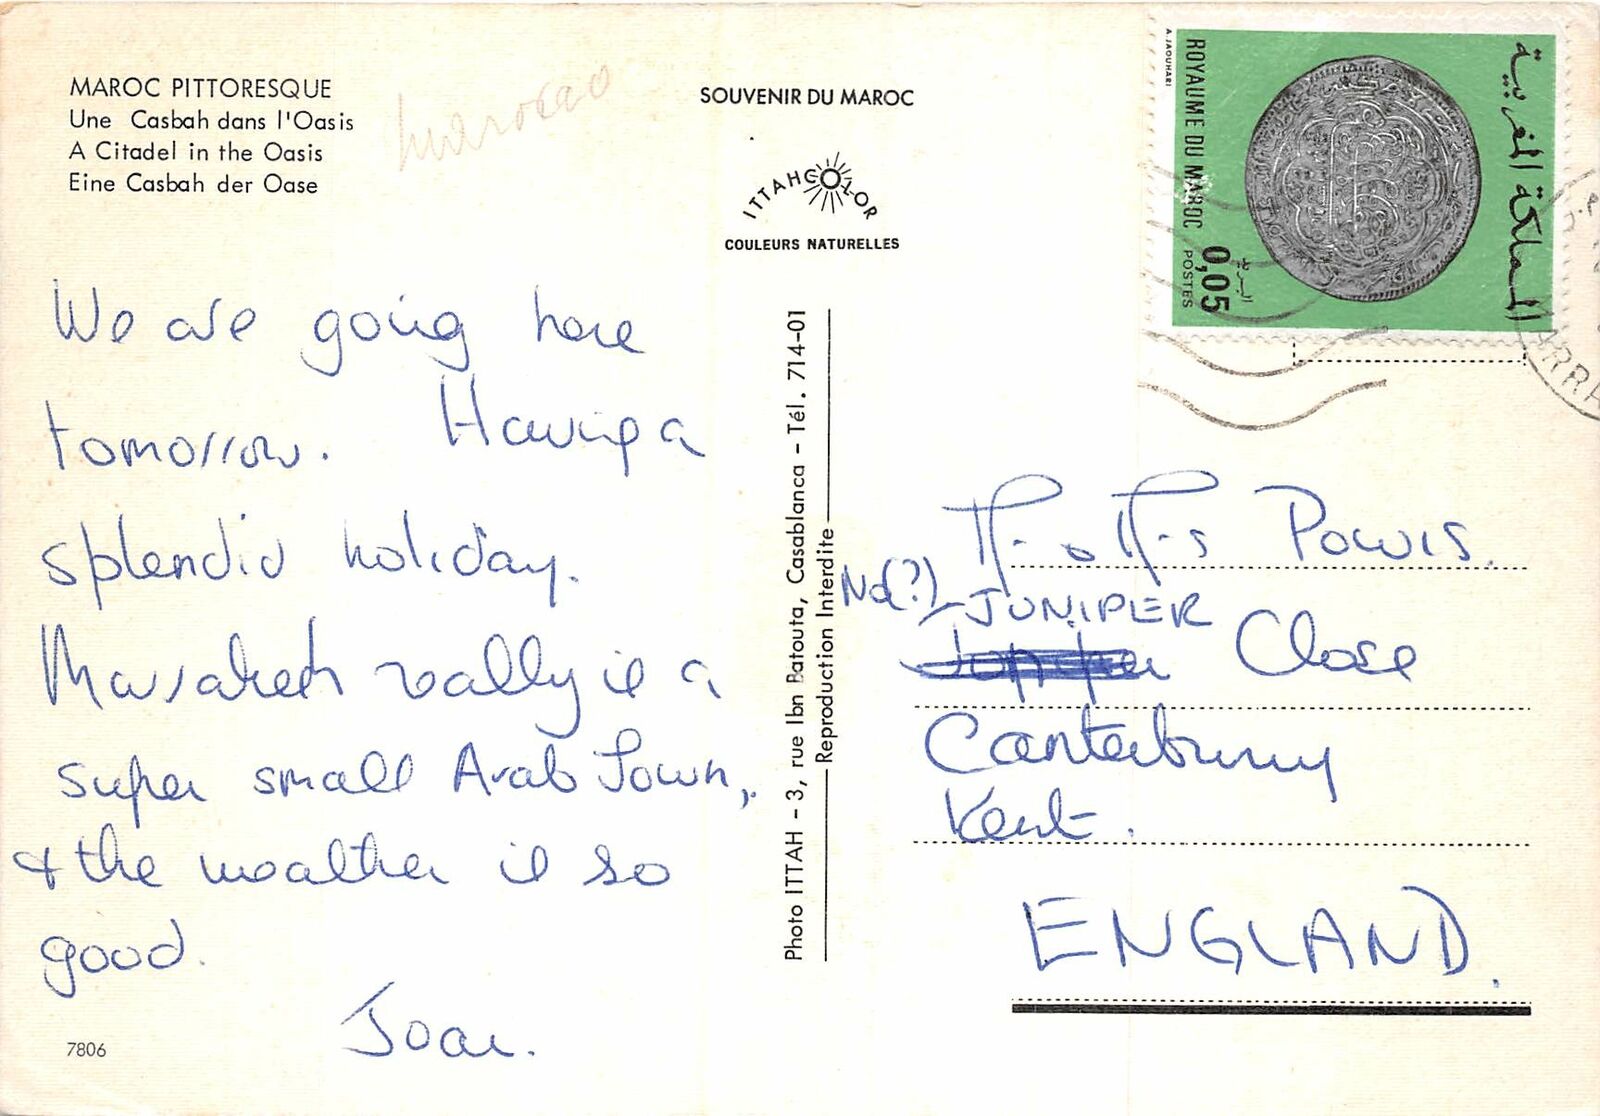 MAROC PITTORESQUE
Une Casbah dans l'Oasis
A Citadel in the Oasis
Eine Casbah der Oase
marocco
We are going here
tomorrow. Having a
splendid holiday.
Marrakech really is a
super small Arab Town,
& the weather is so
good.
Joan.
7806
SOUVENIR DU MAROC
ITTAHCOLOR
COULEURS NATURELLES
Photo ITTAH - 3, rue Ibn Batouta, Casablanca - Tél. 714-01
Reproduction Interdite
المملكة المغربية
البريد
ROYAUME DU MAROC
0,05
POSTES
A. JAOUHARI
ARRA
M. & Mrs Powis.
No(?) JUNIPER
Close
Canterbury
Kent.
ENGLAND.